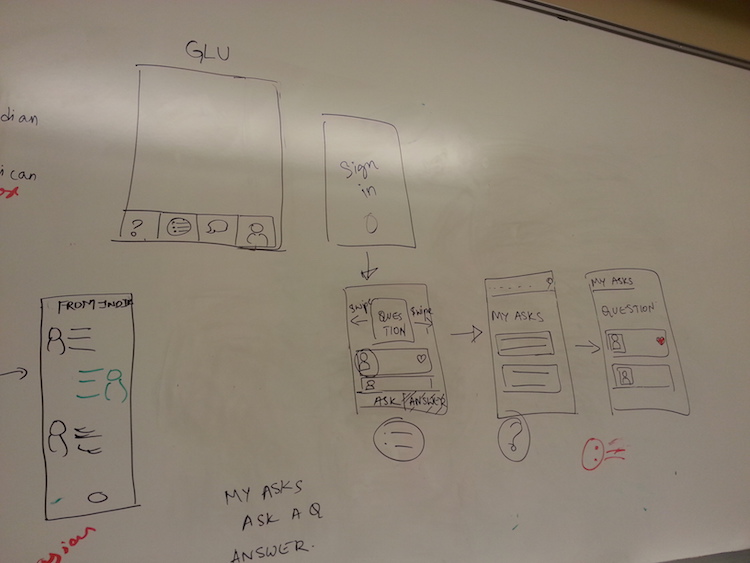 GLU
?
Sign
in
FROM INDIA
swipe
QUES
TION
swipe
ASK
ANSWER
MY ASKS
?
MY ASKS
QUESTION
MY ASKS
ASK A Q
ANSWER.